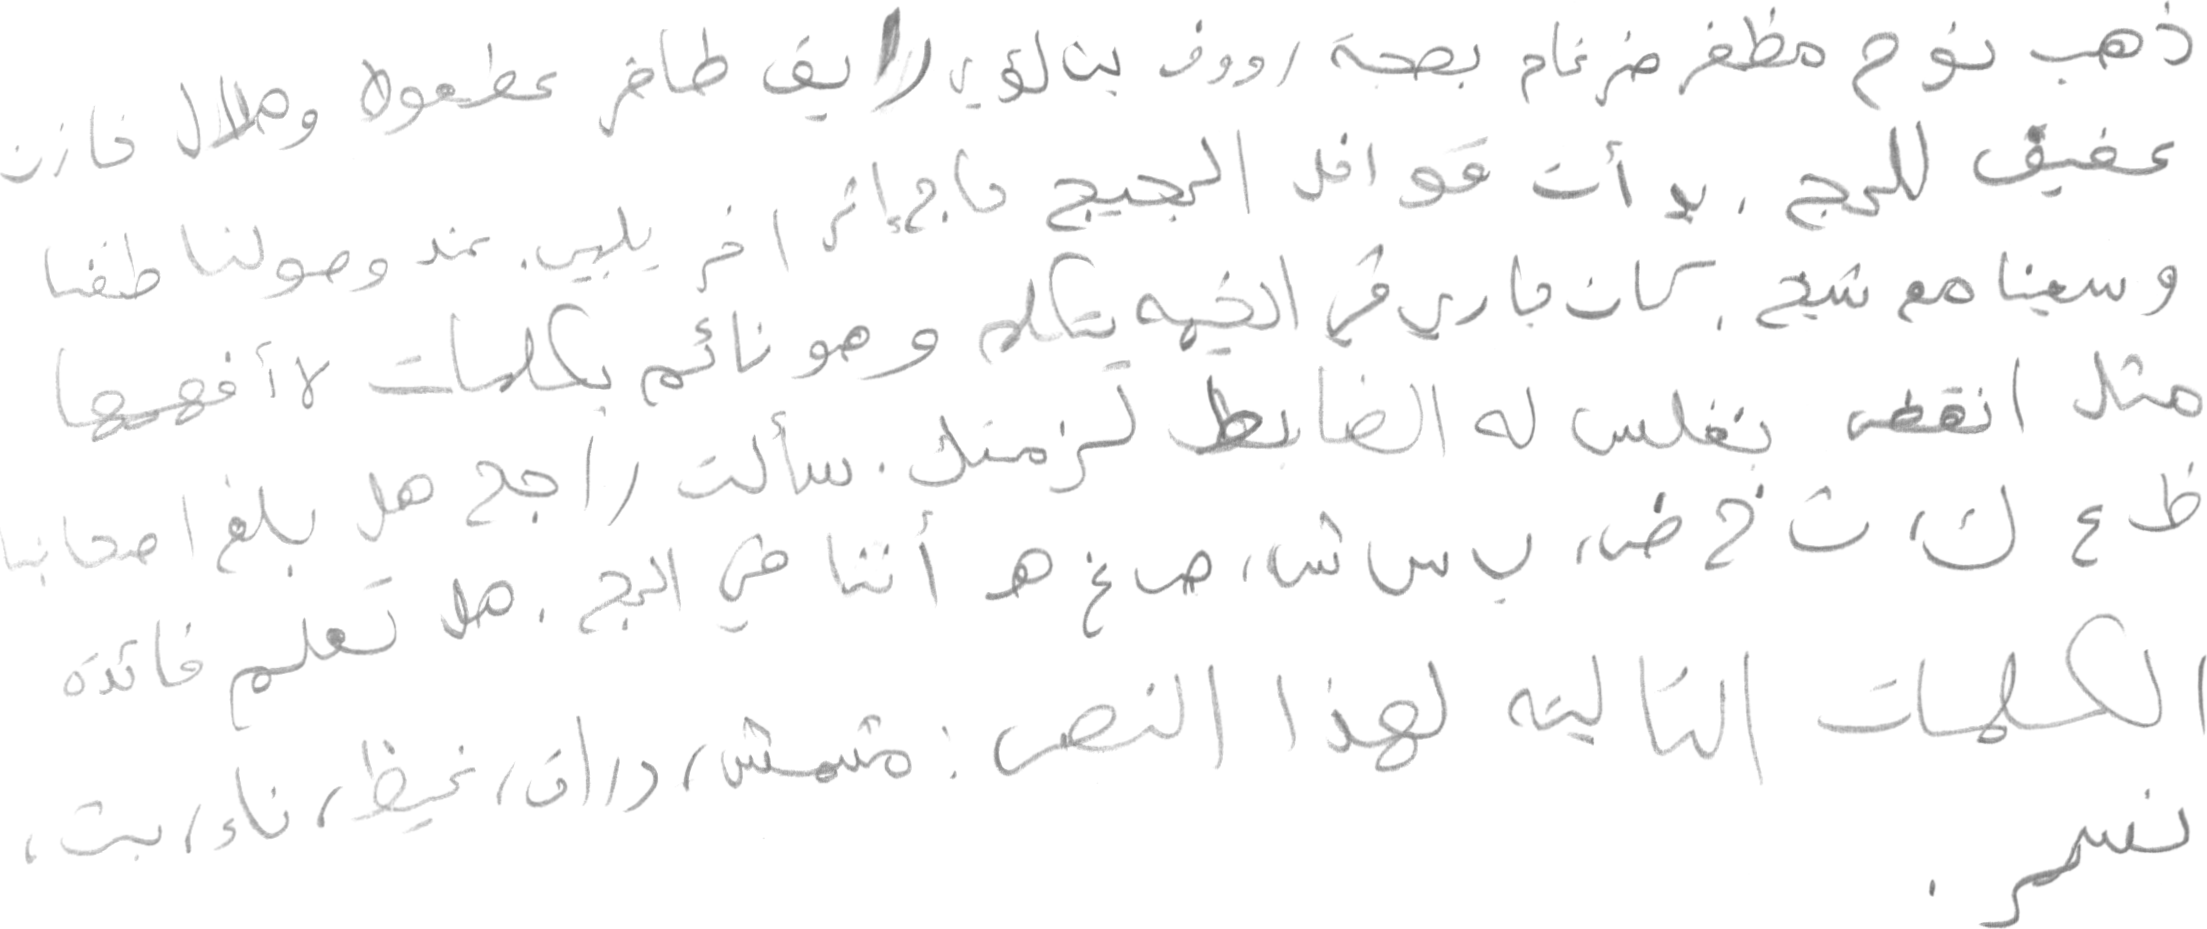 ذهب نوح مظفر ضرغام بصحبة رووف بن لؤي لايق ظافر عطعوط وهلال خازن
عفيف للحج . بدأت قوافل الحجيج حاج إثر اخر يلبي . عند وصولنا طفنا
وسعينا مع شيخ . كان جاري في الخيمه يتكلم وهو نائم بكلمات لا أفهمها
مثل انقظه بغلس له الضابط لزمنك . سألت راجح هل بلغ اصحابنا
ظ ع ك، ث خ ض، ب س ش، ص غ هـ أننا في الحج . هلا تعلم فائدة
الكلمات التاليه لهذا النص : مشمش، دراق، غيظ، ناء، بث،
نسر .